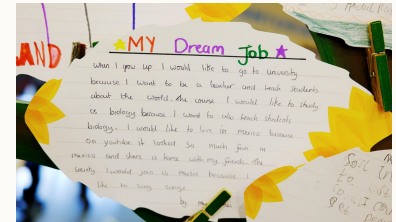 AND
MY Dream Job
when I grow up I would like to go to university
because I want to be a teacher and teach students
about the world. The course I would like to study
is biology because I want to also teach students
biology. I would like to live in mexico because
on youtube it looked so much fun in
mexico and share a house with my friends. The
society I would join is music because I
like to sing songs.
by
Soil in
to
to